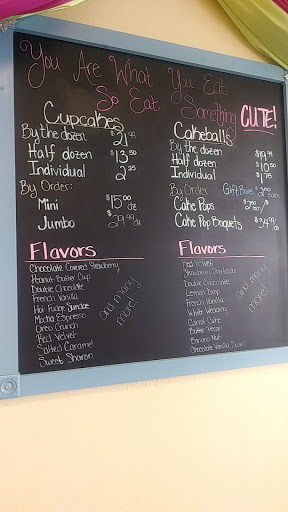 You Are What You Eat
So Eat Something CUTE!
Cupcakes
By the dozen $21.99
Half dozen $13.50
Individual $2.35
By Order:
Mini $15.00 dz
Jumbo $29.99 dz
Flavors
Chocolate Covered Strawberry
Peanut Butter Cup
Double Chocolate
French Vanilla
Hot Fudge Sundae
Mocha Espresso
Oreo Crunch
Red Velvet
Salted Caramel
Sweet Sharon
and many more!
Cakeballs
By the dozen $19.99
Half dozen $10.50
Individual $1.75
By Order Gift Boxes
Cake Pops
Cake Pop Boquets $34.99/dz
Flavors
Red Velvet
Strawberry Shortcake
Double Chocolate
Lemon Drop
French Vanilla
White Wedding
Carrot Cake
Butter Pecan
Banana Nut
Chocolate Vanilla Swirl
and many more!